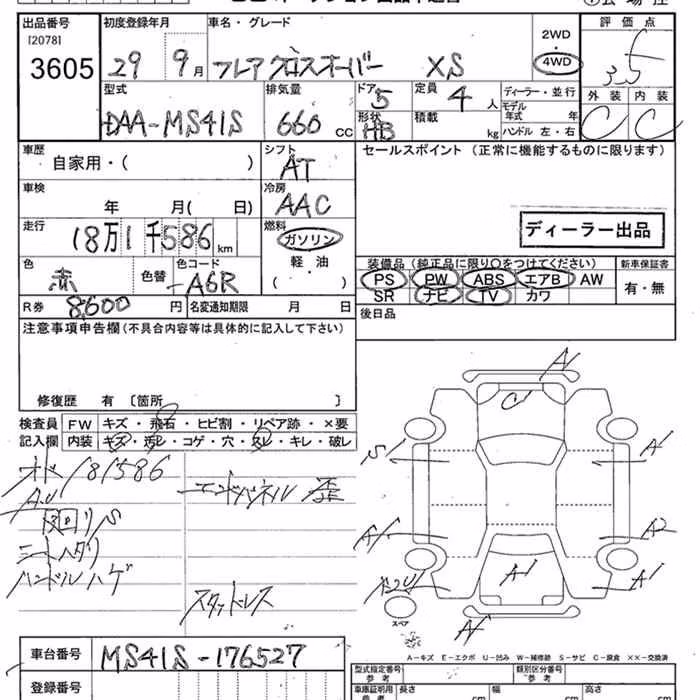 出品番号 初度登録年月 車名・グレード 評価点
[2078] 2WD
3605 29 9月 フレアクロスオーバー XS ・ 3.5
4WD
型式 排気量 ドア 5 定員 4 人 ディーラー・並行 外装 内装
モデル年式 年
DAA-MS41S 660 CC 形状 HB 積載 kg ハンドル 左・右 C C
車歴 シフト セールスポイント (正常に機能するものに限ります)
自家用・( ) AT
車検 冷房
年 月( 日) AAC
走行 燃料
18万1千586km ガソリン ディーラー出品
軽・油
色 色替 色コード ( ) 装備品 (純正品に限り○をつけてください) 新車保証書
赤 -A6R PS PW ABS エアB AW 有・無
R券 8,600 円 名変通知期限 月 日 SR ナビ TV カワ
後日品
注意事項申告欄(不具合内容等は具体的に記入して下さい)
修復歴 有 〔箇所 〕
検査員 FW キズ・飛石・ヒビ割・リペア跡・×要
記入欄 内装 キズ・汚レ・コゲ・穴・スレ・キレ・破レ
オド 181586
エンドパネル 歪
AU
シートヘタリ
ハンドルハゲ
スタッドレス
A1
C1
S1
A1
A1
A2
A1
A1
スペア
A-キズ E-エクボ U-凹み W-補修跡 S-サビ C-腐食 XX-交換済
車台番号 MS41S-176527
型式指定番号 参考 類別区分番号 参考
登録番号
車庫証明用 参考 長さ cm 幅 cm 高さ cm